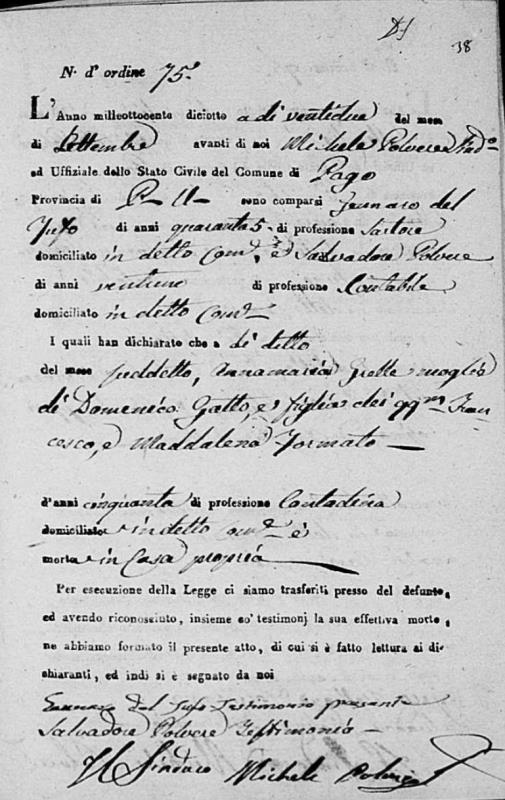 38
N. d'ordine 75.
L'Anno milleottocento diciotto a dì ventidue del mese
di Settembre avanti di noi Michele Polvere Sind.o
ed Uffiziale dello Stato Civile del Comune di Pago
Provincia di P. U. sono comparsi Gennaro del
Jufo di anni quaranta5. di professione Sartore
domiciliato in detto Com.e e Salvadore Polvere
di anni ventuno di professione Contabile
domiciliato in detto Com.e
I quali han dichiarato che a dì detto
del mese suddetto, Annamaria Grelle moglie
di Domenico Gatto, e figlia dei qq.m Fran-
cesco, e Maddalena Formato
d'anni cinquanta di professione Contadina
domiciliato in detto Com.e è
morta in Casa propria
Per esecuzione della Legge ci siamo trasferiti presso del defunto,
ed avendo riconosciuto, insieme co' testimonj la sua effettiva morte,
ne abbiamo formato il presente atto, di cui si è fatto lettura ai di-
chiaranti, ed indi si è segnato da noi
Gennaro del Jufo Testimonio presente
Salvadore Polvere Testimonio
Il Sindaco Michele Polvere